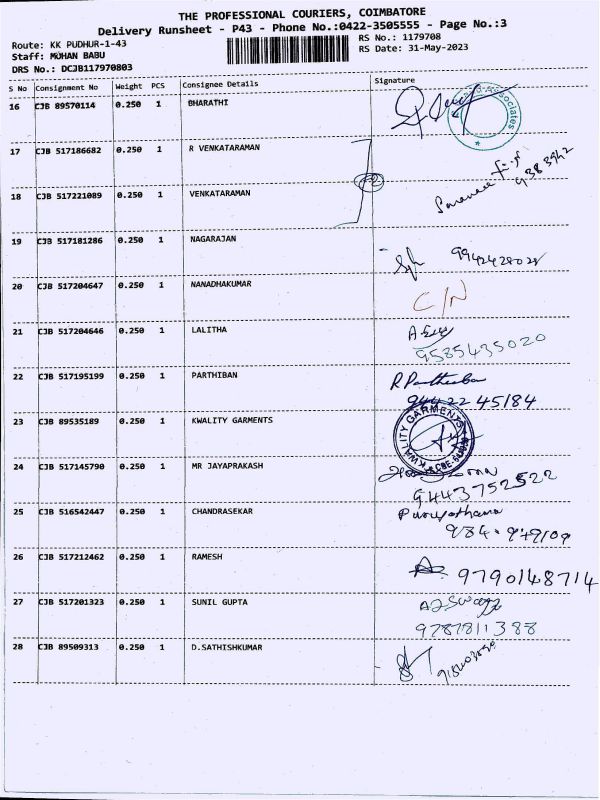 THE PROFESSIONAL COURIERS, COIMBATORE
Delivery Runsheet - P43 - Phone No.:0422-3505555 - Page No.:3
Route: KK PUDHUR-1-43
RS No.: 1179708
Staff: MOHAN BABU
RS Date: 31-May-2023
DRS No.: DCJB117970803
S No Consignment No Weight PCS Consignee Details Signature
16 CJB 89570114 0.250 1 BHARATHI
Associates
17 CJB 517186682 0.250 1 R VENKATARAMAN
18 CJB 517221089 0.250 1 VENKATARAMAN
19 CJB 517181286 0.250 1 NAGARAJAN
20 CJB 517204647 0.250 1 NANADHAKUMAR
C/N
21 CJB 517204646 0.250 1 LALITHA
9585435020
22 CJB 517195199 0.250 1 PARTHIBAN
R Parthiban
94422 45184
23 CJB 89535189 0.250 1 KWALITY GARMENTS
KWALITY GARMENTS
24 CJB 517145790 0.250 1 MR JAYAPRAKASH
9443752522
25 CJB 516542447 0.250 1 CHANDRASEKAR
26 CJB 517212462 0.250 1 RAMESH
9790148714
27 CJB 517201323 0.250 1 SUNIL GUPTA
9787811388
28 CJB 89509313 0.250 1 D.SATHISHKUMAR